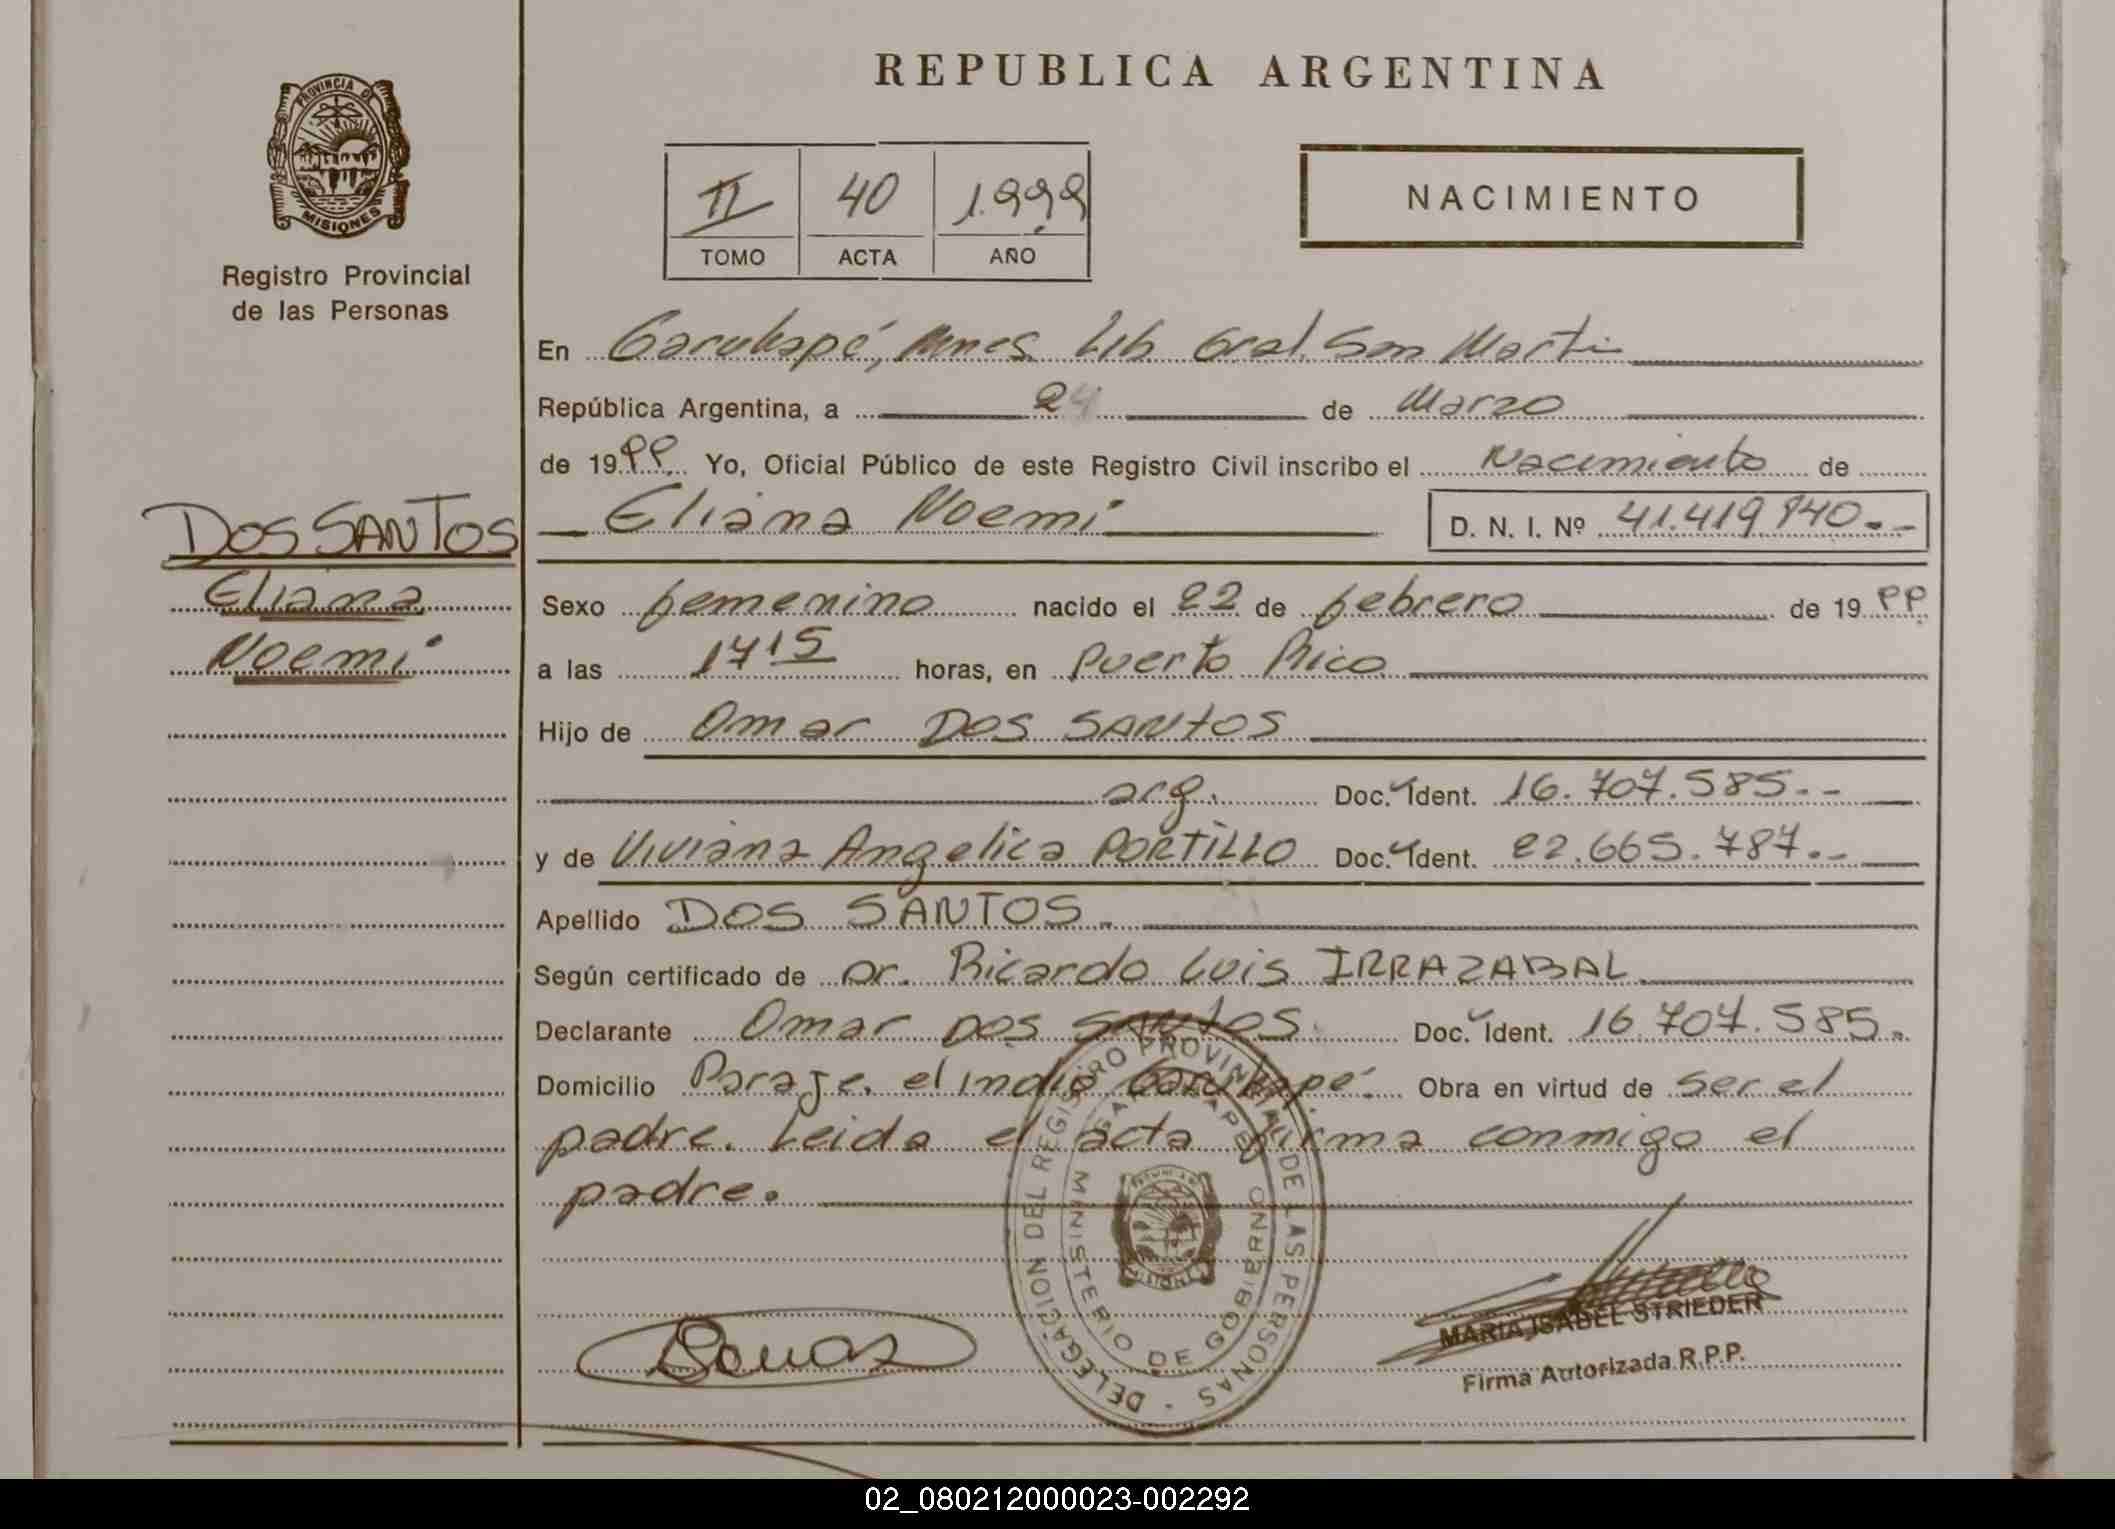 REPUBLICA ARGENTINA
PROVINCIA D
MISIONES
Registro Provincial
de las Personas
II 40 1.999
TOMO ACTA AÑO
NACIMIENTO
En Garuhapé, Mnes. Lib. Gral. San Martin
República Argentina, a 24 de Marzo
de 1999 Yo, Oficial Público de este Registro Civil inscribo el Nacimiento de
Eliana Noemi D. N. I. Nº 41.419.940.-
DOS SANTOS
Eliana
Noemi
Sexo femenino nacido el 22 de febrero de 1999
a las 1715 horas, en Puerto Rico
Hijo de Omar DOS SANTOS
arg. Doc. Ident. 16.707.585.-
y de Viviana Angelica PORTILLO Doc. Ident. 22.665.787.-
Apellido DOS SANTOS.
Según certificado de Dr. Ricardo Luis IRRAZABAL
Declarante Omar DOS SANTOS. Doc. Ident. 16.707.585.
Domicilio Paraje. el indio Garuhapé. Obra en virtud de ser el
padre. Leida el acta firma conmigo el
padre.
DELEGACION DEL REGISTRO PROVINCIAL DE LAS PERSONAS
GARUHAPE
MINISTERIO DE GOBIERNO
MARIA ISABEL STRIEDER
Firma Autorizada R.P.P.
02_080212000023-002292